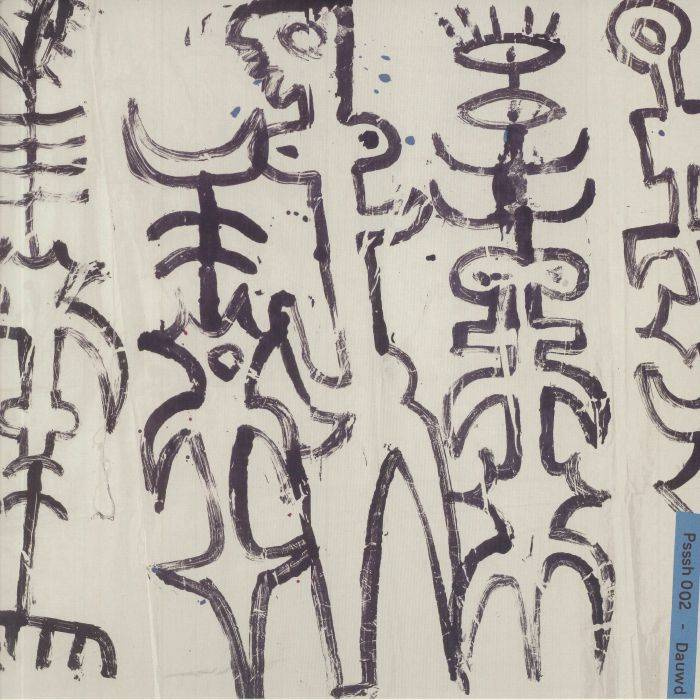 Psssh 002 - Dauwd